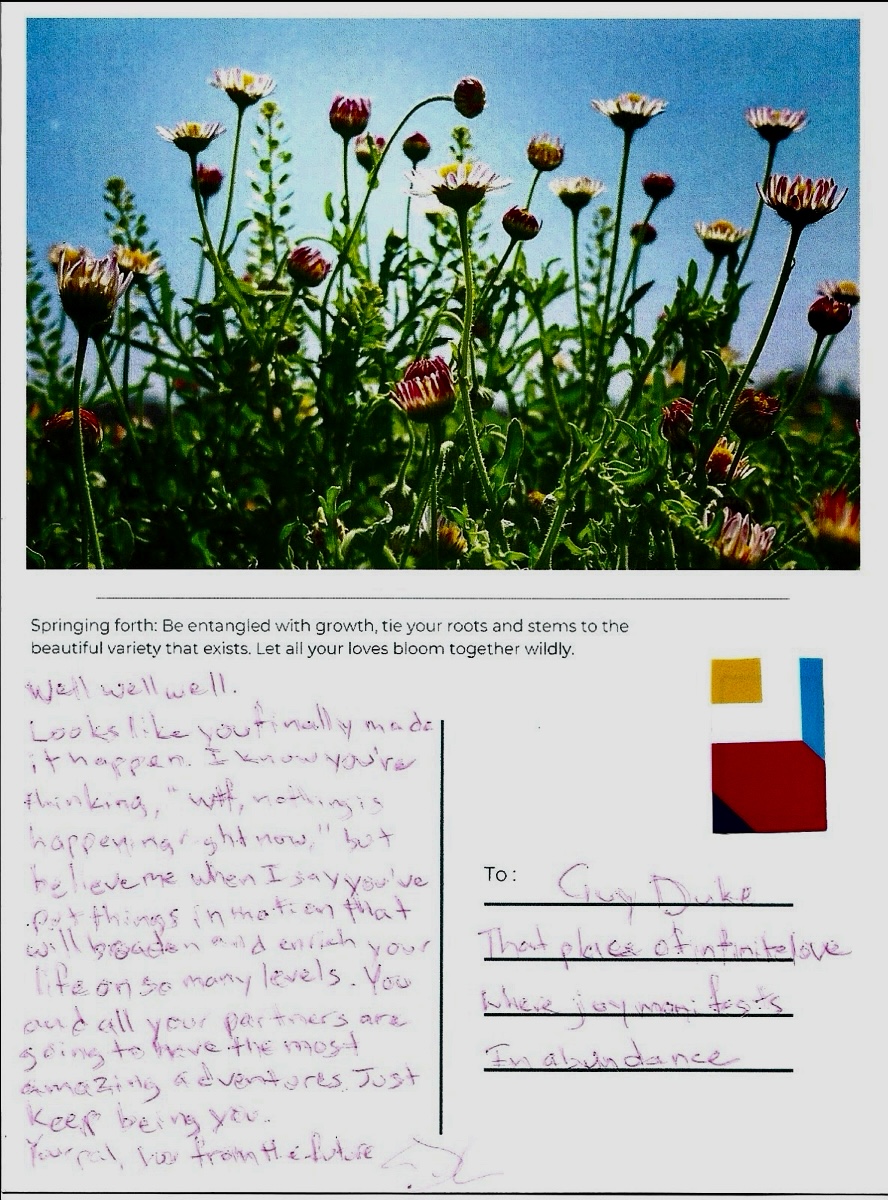 Springing forth: Be entangled with growth, tie your roots and stems to the
beautiful variety that exists. Let all your loves bloom together wildly.
Well well well.
Looks like you finally made
it happen. I know you're
thinking, "wtf, nothing is
happening right now," but
believe me when I say you've
put things in motion that
will broaden and enrich your
life on so many levels. You
and all your partners are
going to have the most
amazing adventures. Just
keep being you.
Your pal, from the future
To: Guy Duke
That place of infinite love
where joy manifests
In abundance